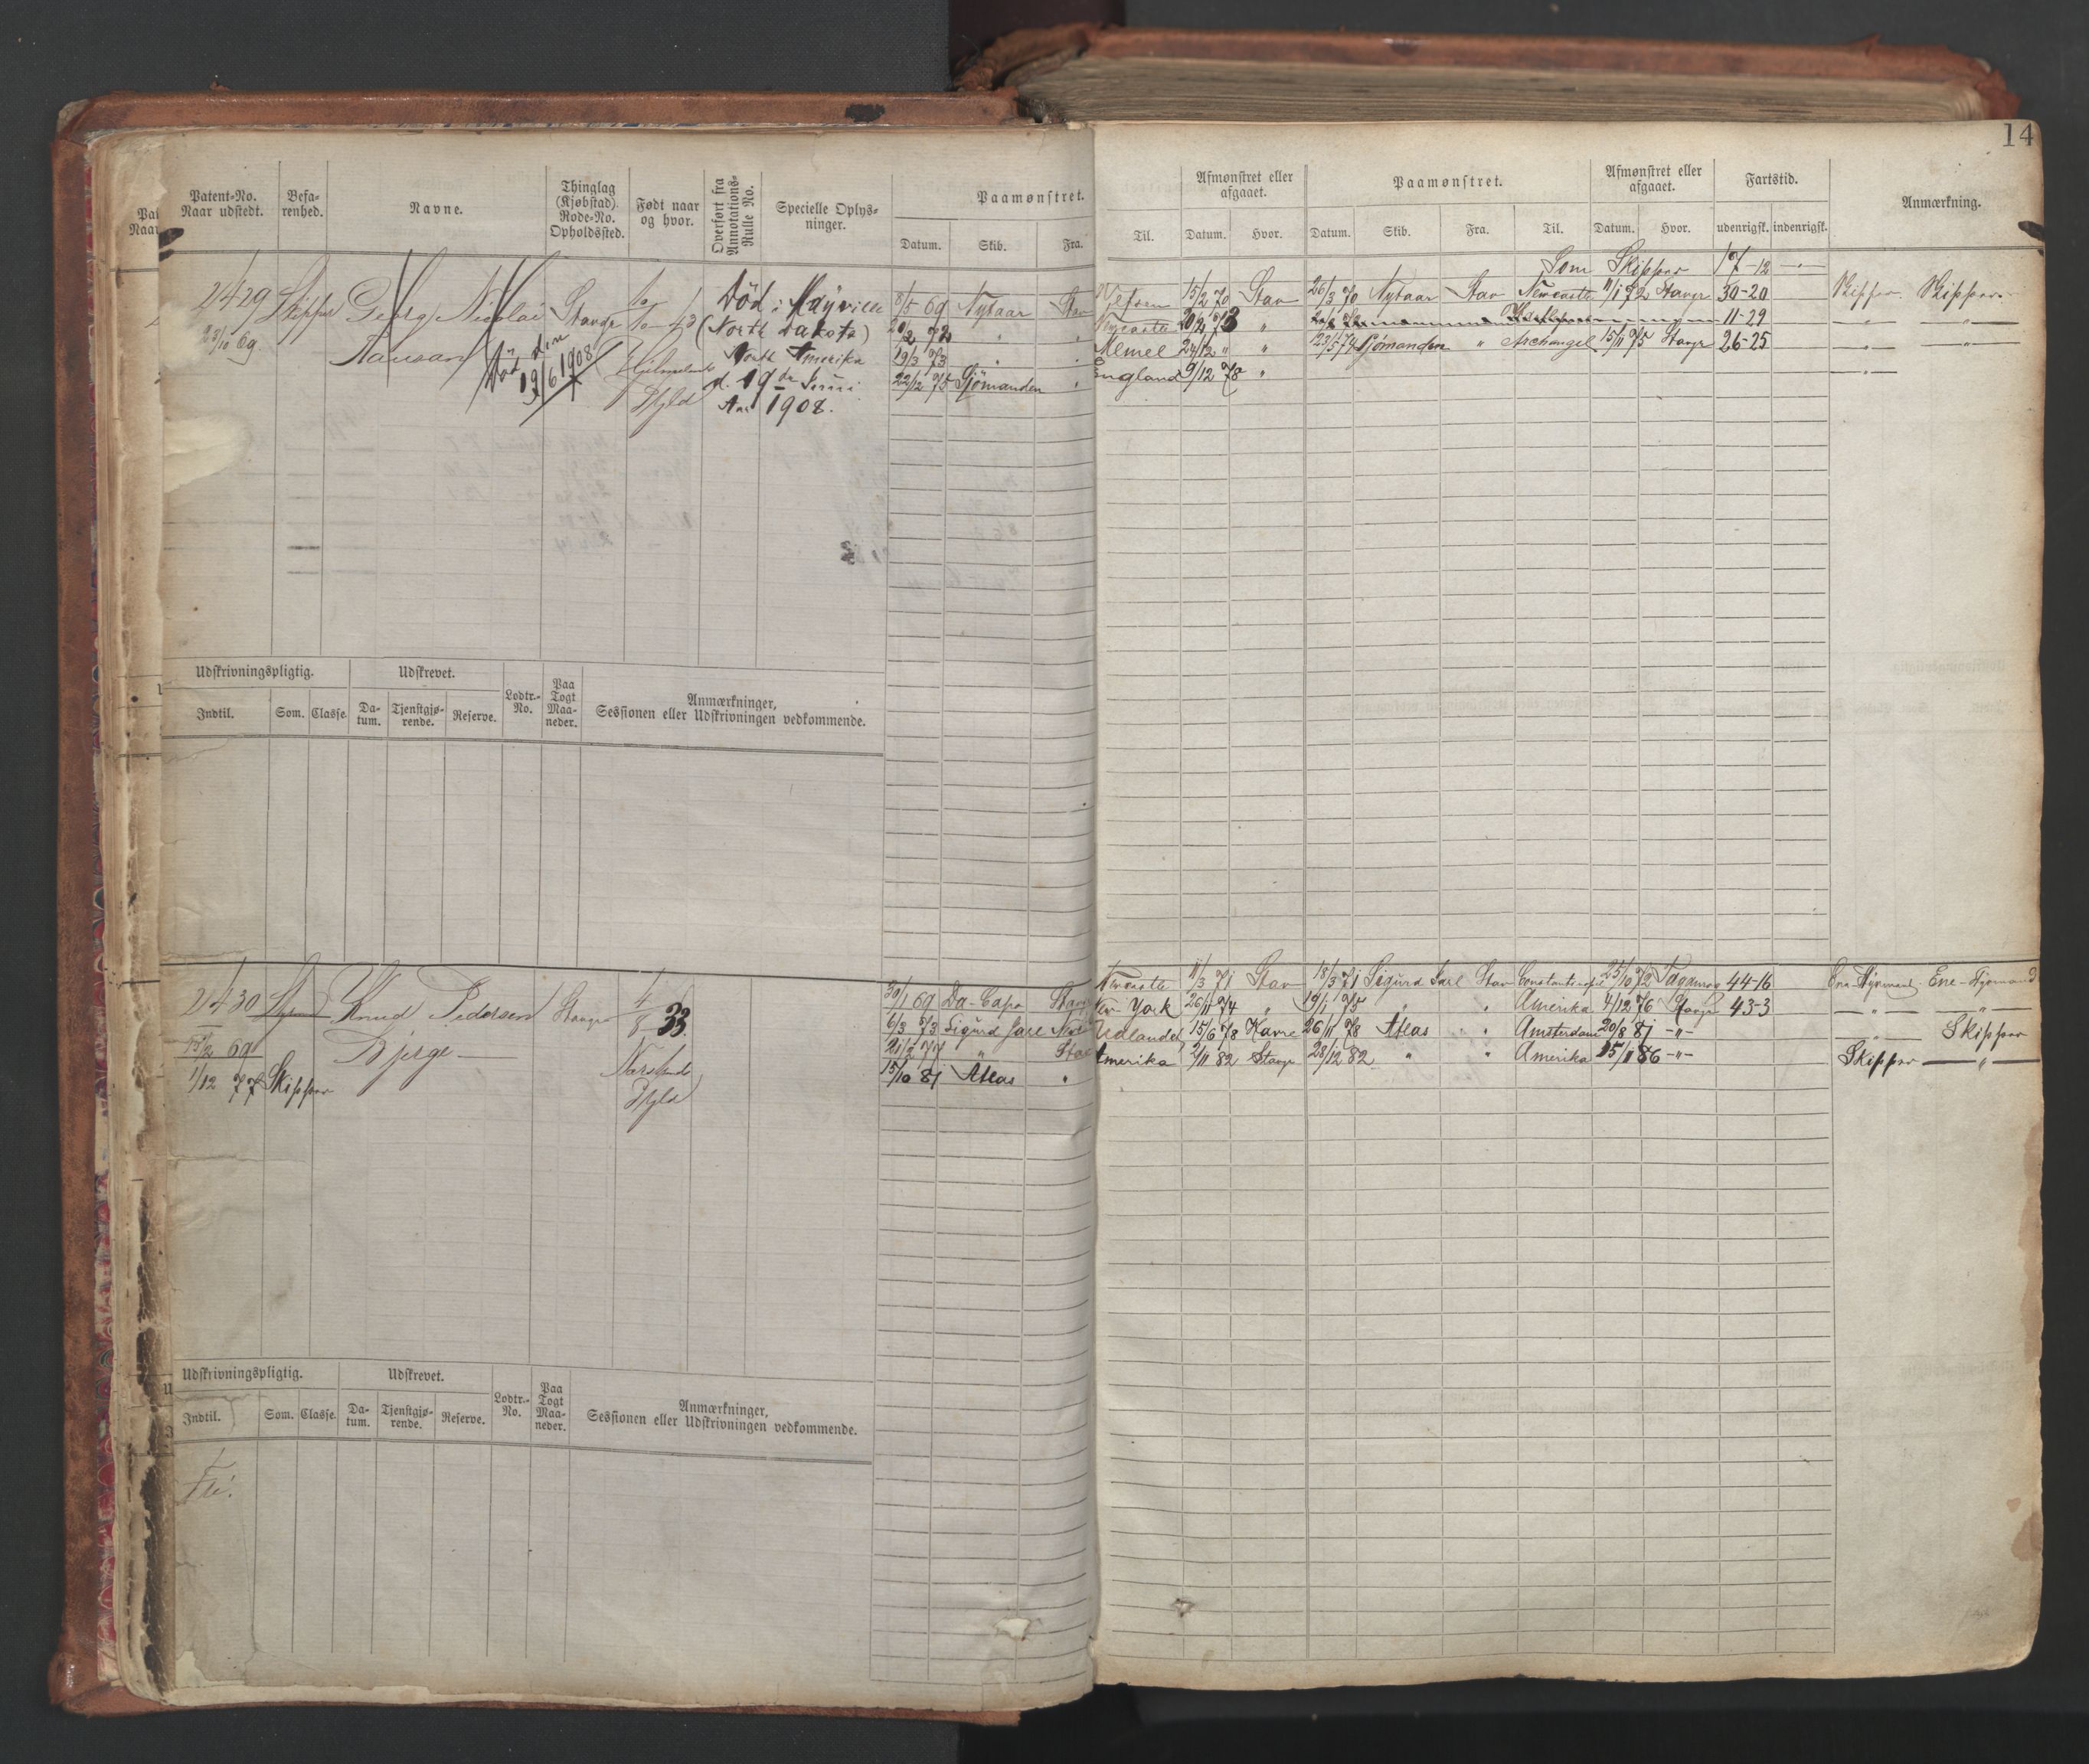 14
Patent-No. Naar udstedt.
Befarenhed.
Navne.
Thinglag (Kjøbstad). Rode-No. Opholdssted.
Født naar og hvor.
Overført fra Annotations-Rulle No.
Specielle Oplysninger.
Paamønstret.
Datum. Skib. Fra. Til.
Afmønstret eller afgaaet.
Datum. Hvor.
Paamønstret.
Datum. Skib. Fra. Til.
Afmønstret eller afgaaet.
Datum. Hvor.
Fartstid.
udenrigsk. indenrigsk.
Anmærkning.
Som Skipper 17-12
2429 Skipper Georg Nicolai Stavgr
23/10 69
Død den 19/6 1908
Hjelmeland
Ryld
Død i Mayville
(North Dakota)
North Amerika
d. 19de Juni
Aar 1908.
8/5 69 Nytaar Stav 15/2 70 Stav 26/3 70 Nytaar Stav Newcastle 11/1 72 Stavgr 30-20 Skipper Skipper
20/2 72 " " Newcastle 20/2 73 " 11-29
19/3 73 " " Memel 24/12 " " 23/5 74 Sjömanden " Archangel 15/11 75 Stavgr 26-25
22/12 75 Sjömanden " England 9/12 78 "
Udskrivningspligtig.
Udskrevet.
Lodtr.-No.
Paa Togt Maaneder.
Anmærkninger, Sessionen eller Udskrivningen vedkommende.
Indtil. Som. Classe. Datum. Tjenstgjørende. Reserve.
2430 Knud Pedersen Stavgr 4/8 33
Bjerge
15/2 69
1/12 77 Skipper
30/1 69 Da-Capo Stavgr Newcastle 11/3 71 Stav 18/3 71 Sigurd Jarl Stav Constantinopel 25/10 72 44-16
6/3 73 Sigurd Jarl New York 26/11 74 " 19/1 75 " " Amerika 4/12 76 Stavgr 43-3
21/2 77 " Stav Udlandet 15/6 78 Havre 26/11 78 Atlas " Amsterdam 20/8 81 -"- Skipper
15/10 81 Atlas " Amerika 2/11 82 Stavgr 28/12 82 " " Amerika 15/1 86 -"- Skipper
Udskrivningspligtig.
Udskrevet.
Lodtr.-No.
Paa Togt Maaneder.
Anmærkninger, Sessionen eller Udskrivningen vedkommende.
Indtil. Som. Classe. Datum. Tjenstgjørende. Reserve.